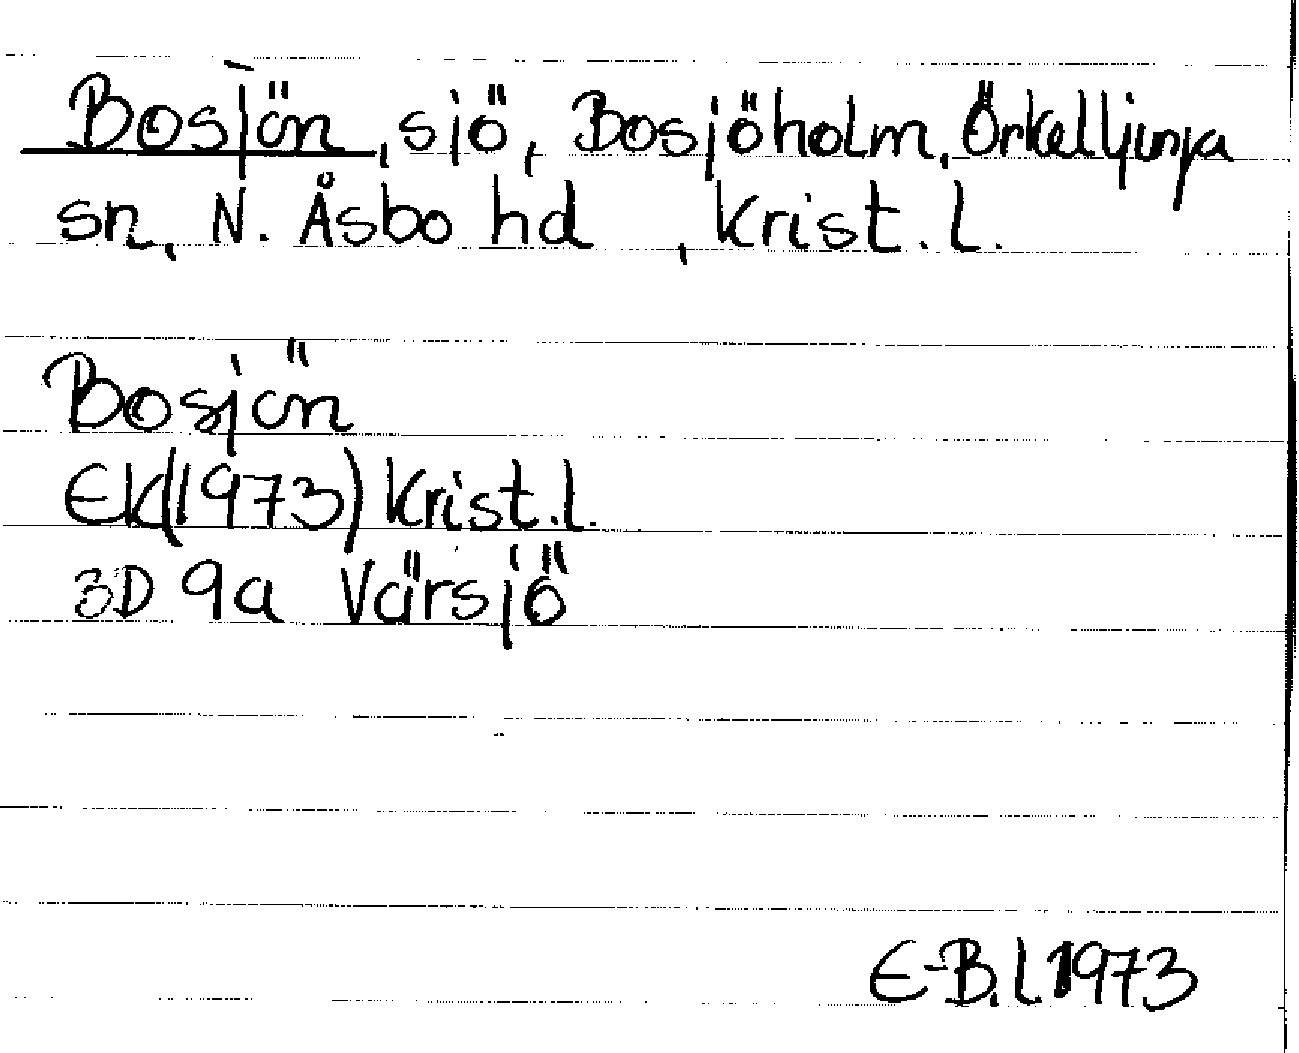 Bosjön, sjö, Bosjöholm, Örkelljunga
sn, N. Åsbo hd, Krist. l.
Bosjön
EK(1973) Krist.l.
3D 9a Värsjö
E-B.L 1973